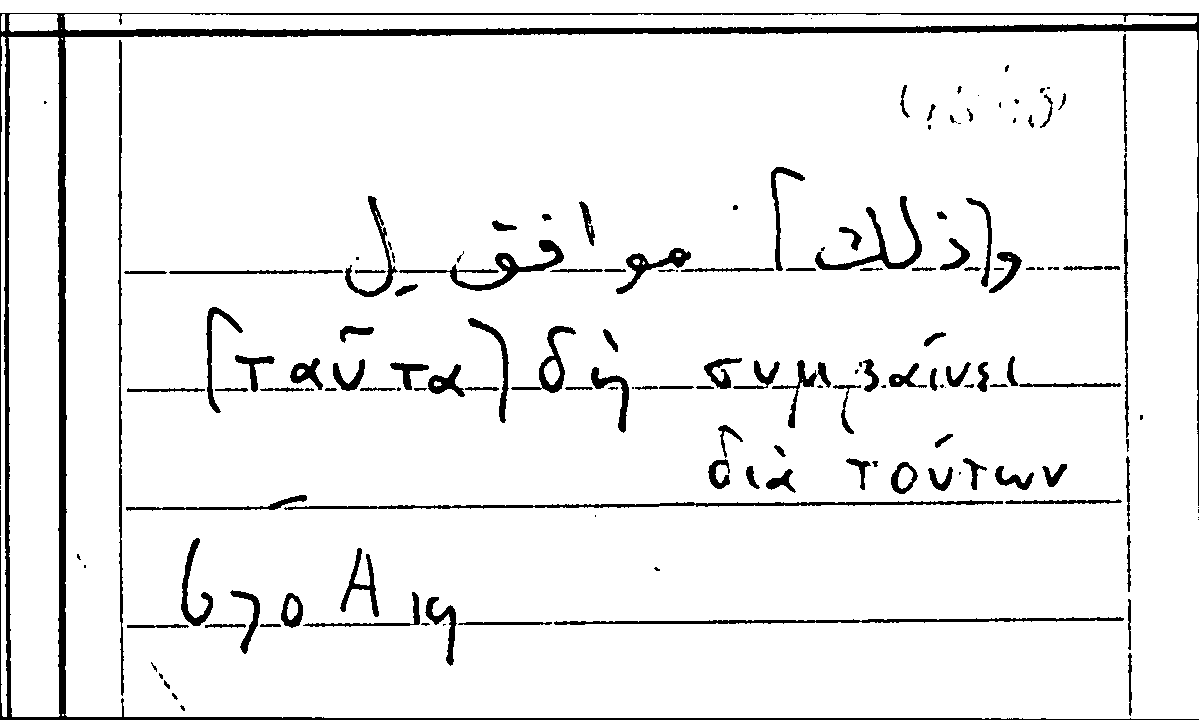 و[ذلك] موافق ل
[ταῦτα] δὴ συμβαίνει
διὰ τούτων
670 A 19